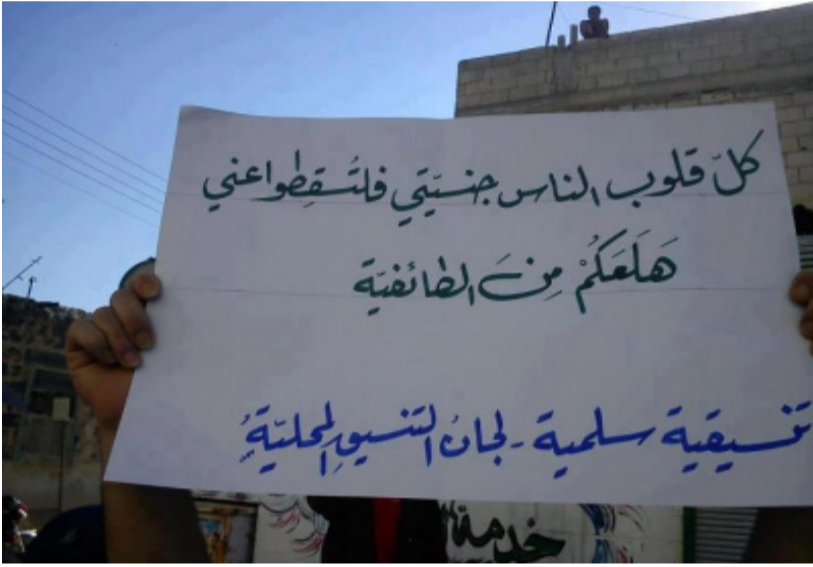 كلّ قلوب الناس جنسيّتي فلتُسقِطوا عني
هَلَعَكُمْ مِنَ الطائفيّة
تنسيقية سلمية - لجانُ التنسيقِ المحليّةِ
خدمة